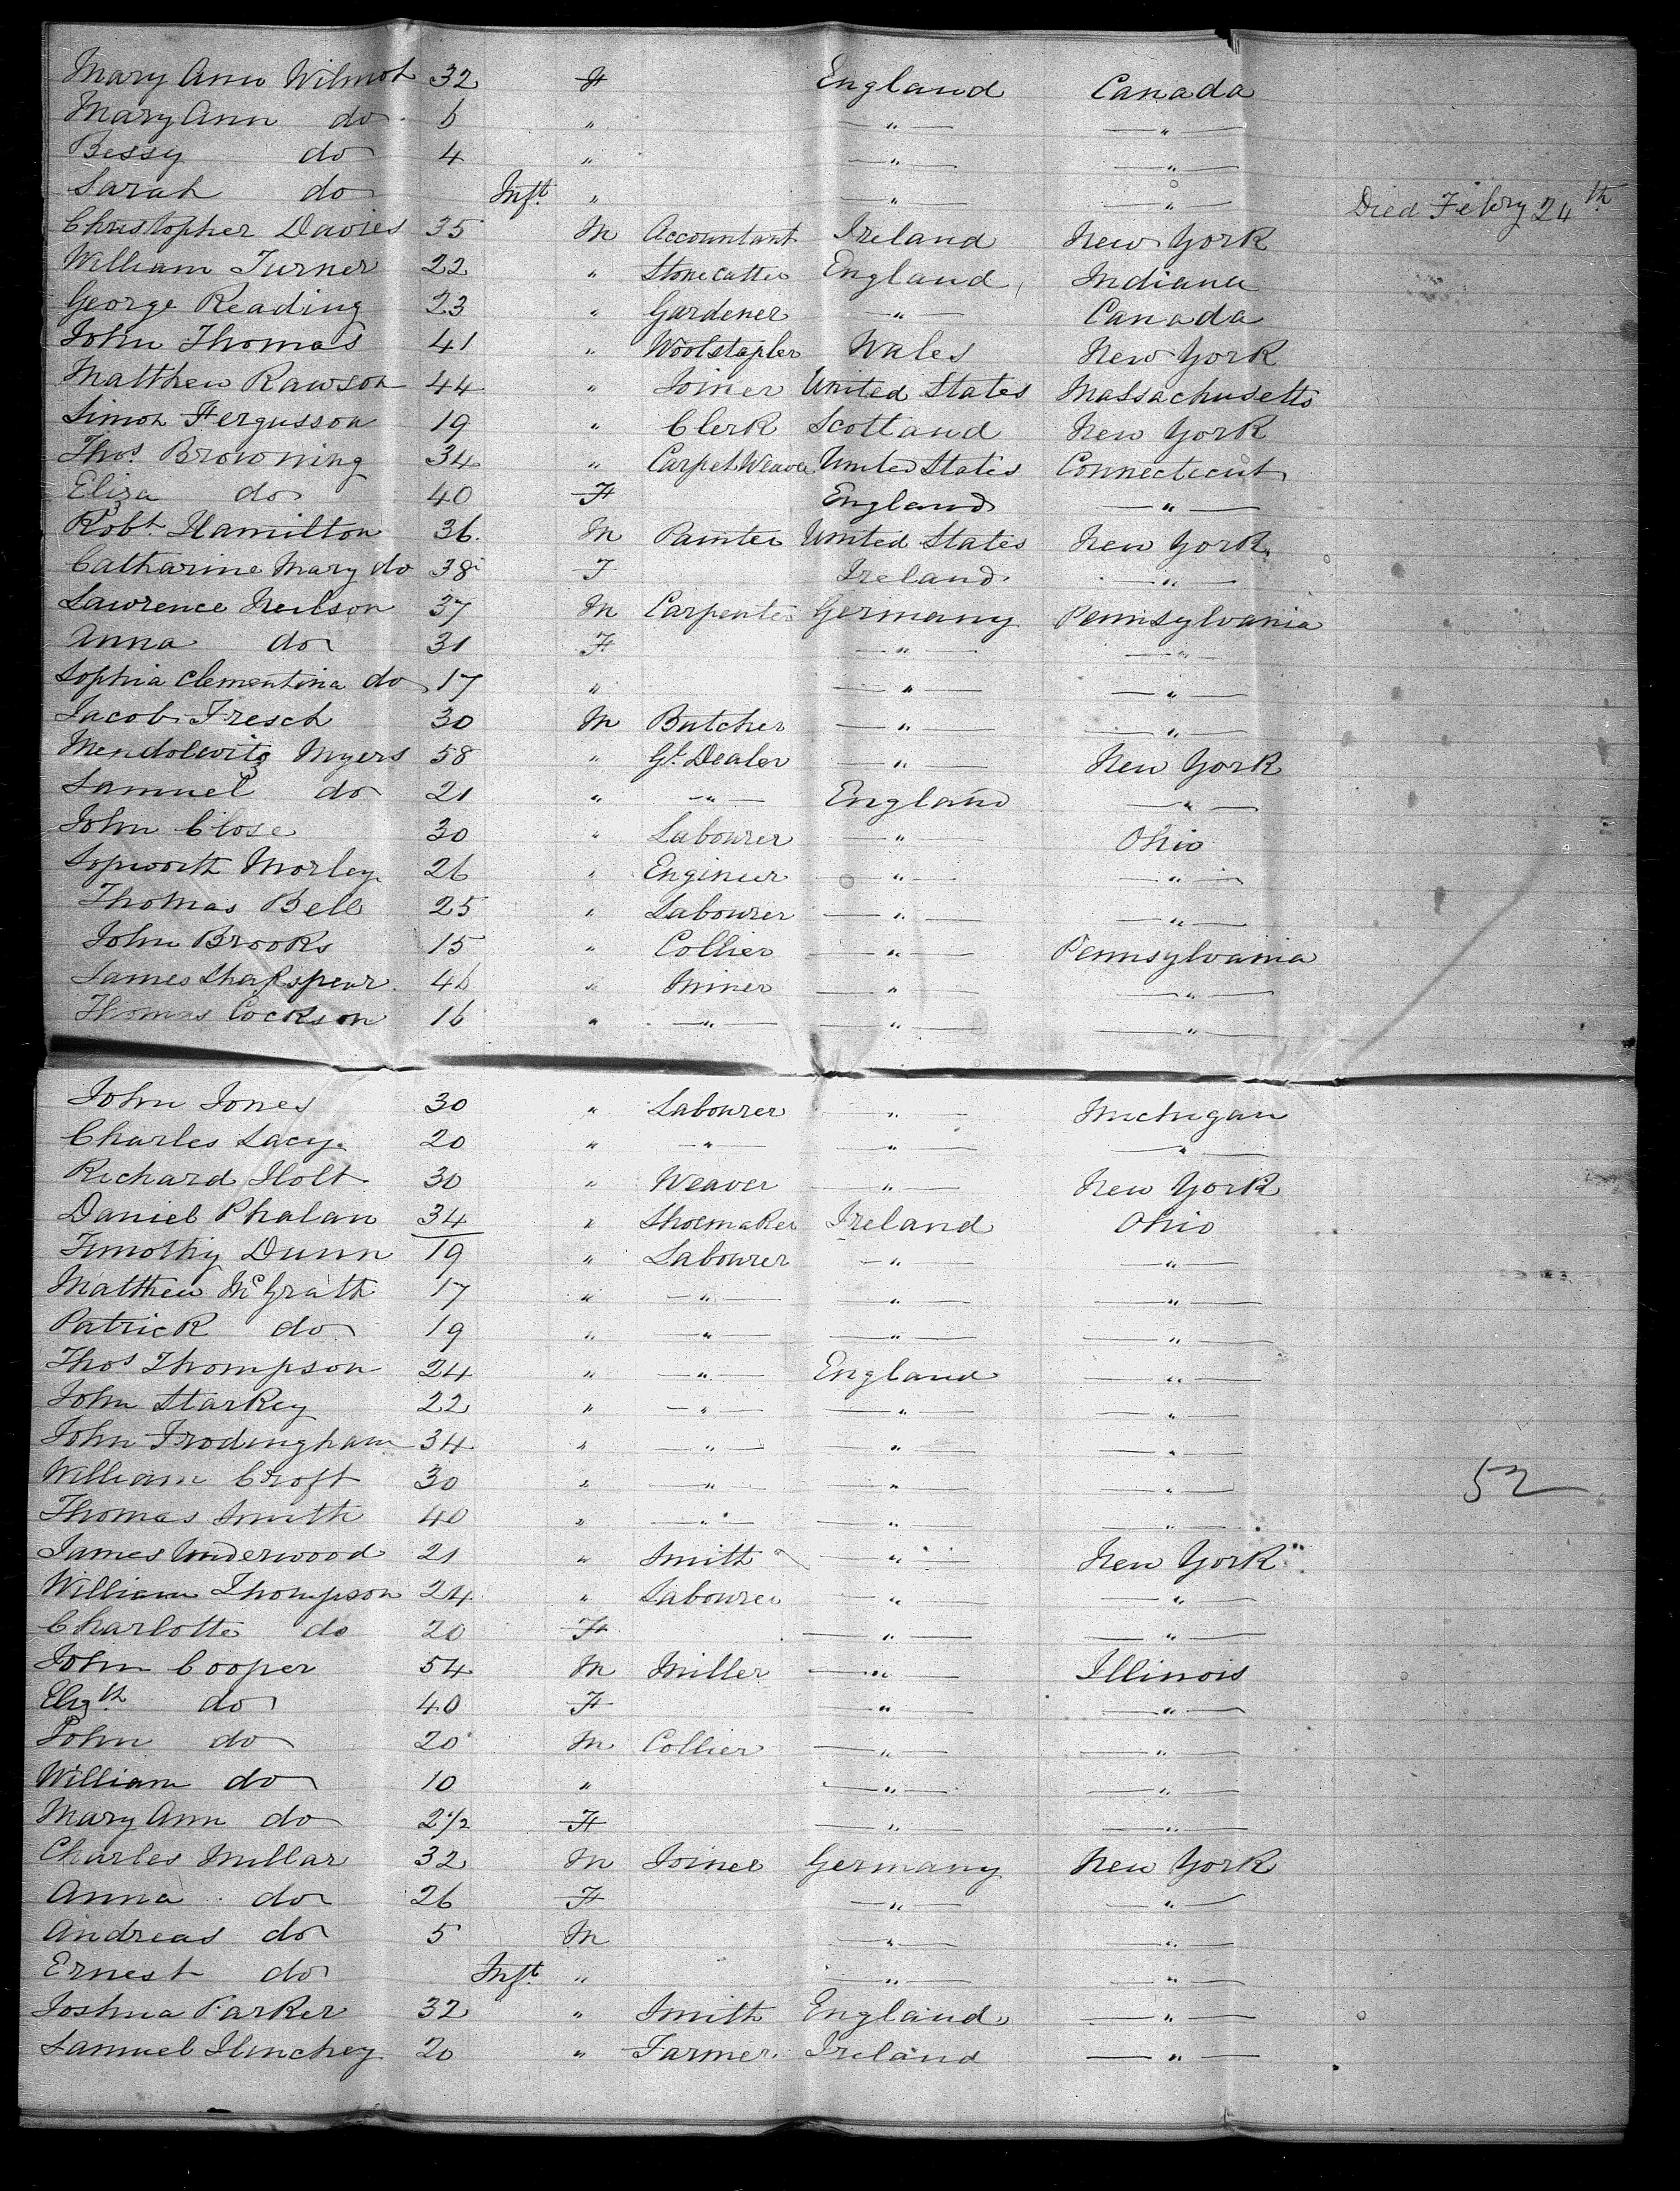 Mary Ann Wilmot 32 F England Canada
Mary Ann do 6 " — " — — " —
Bessy do 4 " — " — — " —
Sarah do Inft. " — " — — " — Died Febry 24th
Christopher Davies 35 M Accountant Ireland New York
William Turner 22 " Stone Cutter England Indiana
George Reading 23 " Gardener — " — Canada
John Thomas 41 " Woolstapler Wales New York
Matthew Rawson 44 " Joiner United States Massachusetts
Simon Fergusson 19 " Clerk Scotland New York
Thos. Browning 34 " Carpet Weaver United States Connecticut
Eliza do 40 F England — " —
Robt. Hamilton 36 M Painter United States New York
Catharine Mary do 38 F Ireland — " —
Lawrence Neilson 37 M Carpenter Germany Pennsylvania
Anna do 31 F — " — — " —
Sophia Clementina do 17 " — " — — " —
Jacob Fresch 30 M Butcher — " — — " —
Mendolwitz Myers 58 " Gl. Dealer — " — New York
Samuel do 21 " — " — England — " —
John Close 30 " Labourer — " — Ohio
Sopworth Morley 26 " Engineer — " — — " —
Thomas Bell 25 " Labourer — " — — " —
John Brooks 15 " Collier — " — Pennsylvania
James Shakspear 46 " Miner — " — — " —
Thomas Cockson 16 " — " — — " — — " —
John Jones 30 " Labourer — " — Michigan
Charles Lacy 20 " — " — — " — — " —
Richard Holt 30 " Weaver — " — New York
Daniel Phalan 34 " Shoemaker Ireland Ohio
Timothy Dunn 19 " Labourer — " — — " —
Matthew McGrath 17 " — " — — " — — " —
Patrick do 19 " — " — — " — — " —
Thos Thompson 24 " — " — England — " —
John Starkey 22 " — " — — " — — " —
John Frodingham 34 " — " — — " — — " —
William Croft 30 " — " — — " — — " — 52
Thomas Smith 40 " — " — — " — — " —
James Underwood 21 " Smith — " — New York
William Thompson 24 " Labourer — " — — " —
Charlotte do 20 F — " — — " —
John Cooper 54 M Miller — " — Illinois
Elizth. do 40 F — " — — " —
John do 20 M Collier — " — — " —
William do 10 " — " — — " —
Mary Ann do 2½ F — " — — " —
Charles Millar 32 M Joiner Germany New York
Anna do 26 F — " — — " —
Andreas do 5 M — " — — " —
Ernest do Inft. " — " — — " —
Joshua Parker 32 " Smith England — " —
Samuel Hinchey 20 " Farmer Ireland — " —